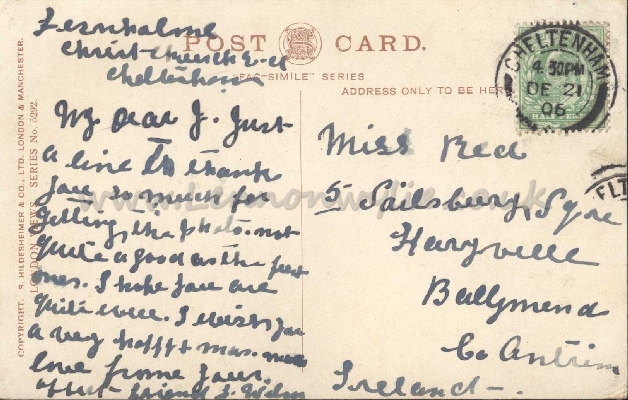 Fernholme
Christ Church Rd
Cheltenham
POST CARD.
"FAC-SIMILE" SERIES
ADDRESS ONLY TO BE HERE
CHELTENHAM
4.30PM
DE 21
06
My Dear J. Just
a line to thank
you so much for
getting the photo. not
quite a good as the past
ones. I hope you are
quite well. I wish you
a very happy
love frome your
friend J.
Miss Reed
5 Sailsbury Sqre
Harryville
Ballymend
Co Antrim
Ireland
COPYRIGHT. R. HILDESHEIMER & CO., LTD. LONDON & MANCHESTER.
LONDON VIEWS. SERIES No. 5292.